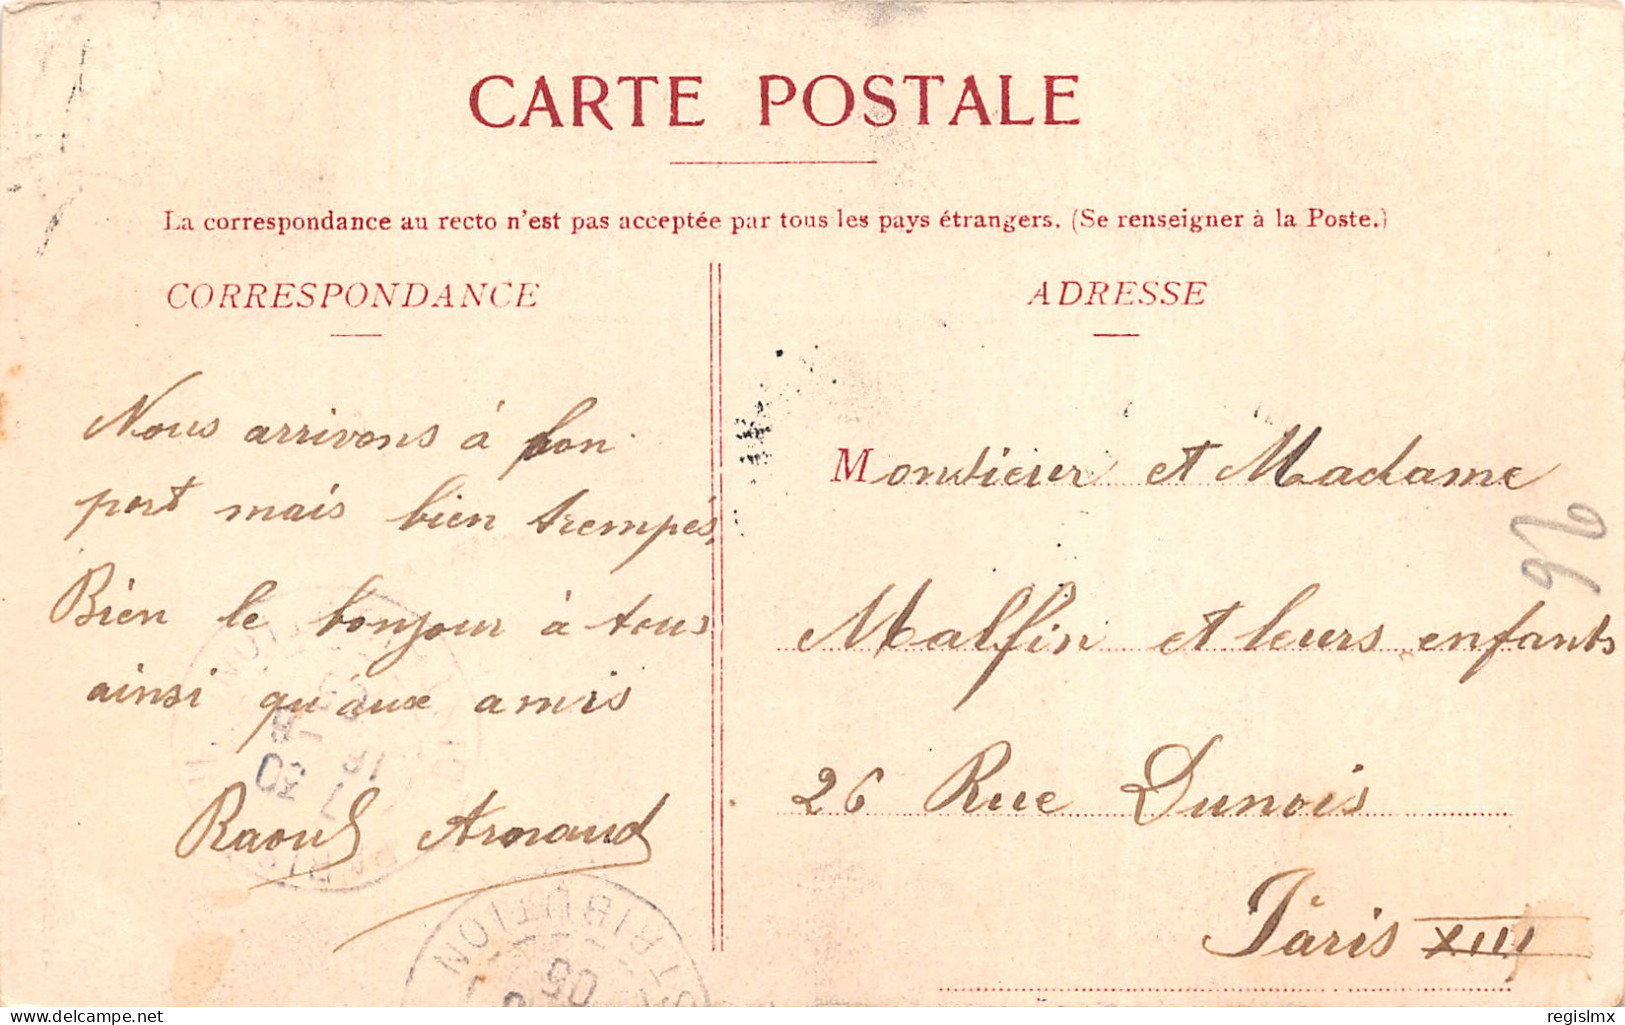 CARTE POSTALE
La correspondance au recto n'est pas acceptée par tous les pays étrangers. (Se renseigner à la Poste.)
CORRESPONDANCE
Nous arrivons à bon
port mais bien trempés,
Bien le bonjour à tous
ainsi qu'aux amis
Raoul Arnaud
ADRESSE
Monsieur et Madame
Malfin et leurs enfants
26 Rue Dunois
Pàris XIII
96
7 30
DISTRIBUTION
05
www.delcampe.net
regislmx